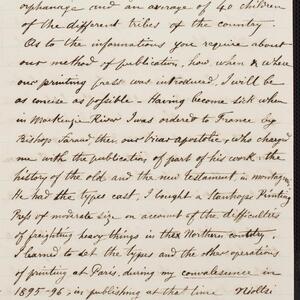 orphanage and an average of 40 children
of the different tribes of the country.
As to the informations you require about
our method of publication, how when & where
our printing press was introduced, I will be
as concise as possible - Having become sick when
in Mackenzie River I was ordered to France by
Bishop Faraud, then our vicar apostolic, who charged
me with the publication of part of his work, the
history of the old and the new testament, in montagnais
He had the types cast, I bought a Stanhope Printing
Press of moderate size on account of the difficulties
of freighting heavy things in the Northern country.
I learned to set the types and the other operations
of printing at Paris, during my convalescence in
1895-96, in publishing at that time